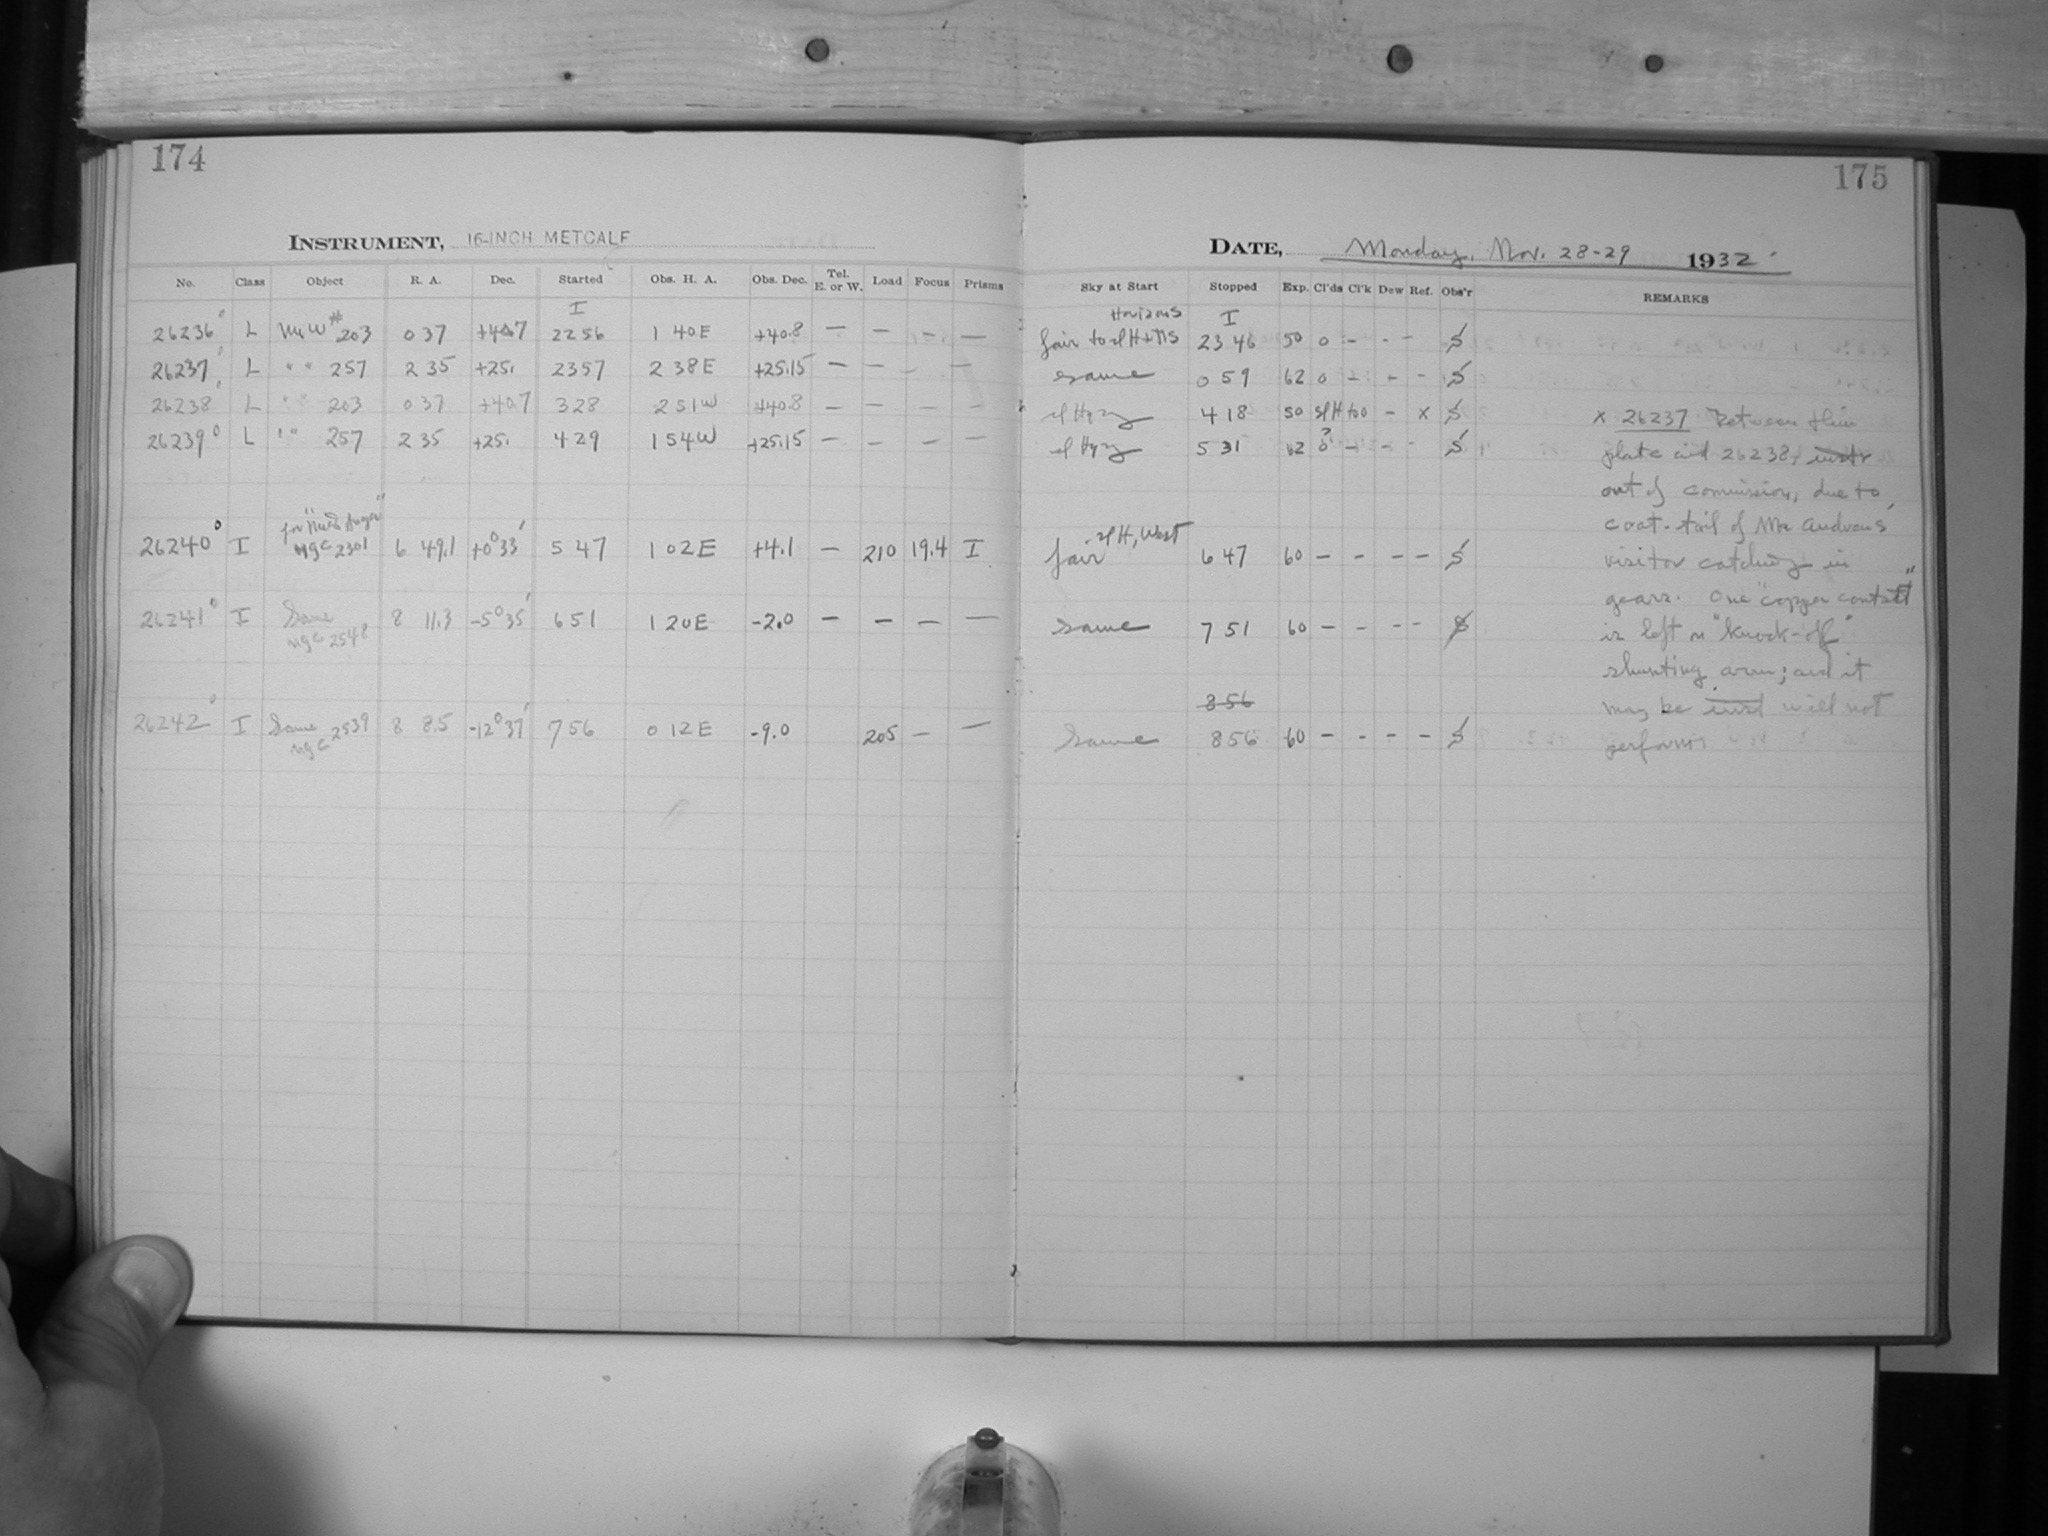 174
INSTRUMENT, 16-INCH METCALF
No. Class Object R. A. Dec. Started Obs. H. A. Obs. Dec. Tel. E. or W. Load Focus Prisms
I
26236 L MW # 203 0 37 +40.7 22 56 1 40 E +40.8 — — — —
26237 L " " 257 2 35 +25. 23 57 2 38 E +25.15 — — — —
26238 L " " 203 0 37 +40.7 3 28 2 51 W +40.8 — — — —
26239 L " " 257 2 35 +25. 4 29 1 54 W +25.15 — — — —
for
26240 I NGC 2301 6 49.1 +0°33' 5 47 1 02 E +4.1 — 210 19.4 I
26241 I Same 8 11.3 -5°35' 6 51 1 20 E -2.0 — — — —
NGC 2548
26242 I Same 8 8.5 -12°37' 7 56 0 12 E -9.0 205 — —
NGC 2539
175
DATE, Monday, Nov. 28-29 1932.
Sky at Start Stopped Exp. Cl'ds Cl'k Dew Ref. Obs'r REMARKS
Horizons I
fair to sl H + 23 46 50 0 - - - S
same 0 59 62 0 - - - S
sl Hazy 4 18 50 sl H too - x S x 26237 Between this
sl Hazy 5 31 62 0? - - - S plate and 26238, instr
out of commission, due to
sl H, West coat-tail of Mr Andrews'
fair 6 47 60 - - - - S visitor catching in
gears. One "copper contact"
same 7 51 60 - - - - S is left on "knock-off"
shunting arm; and it
856 may be inst will not
Same 8 56 60 - - - - S perform